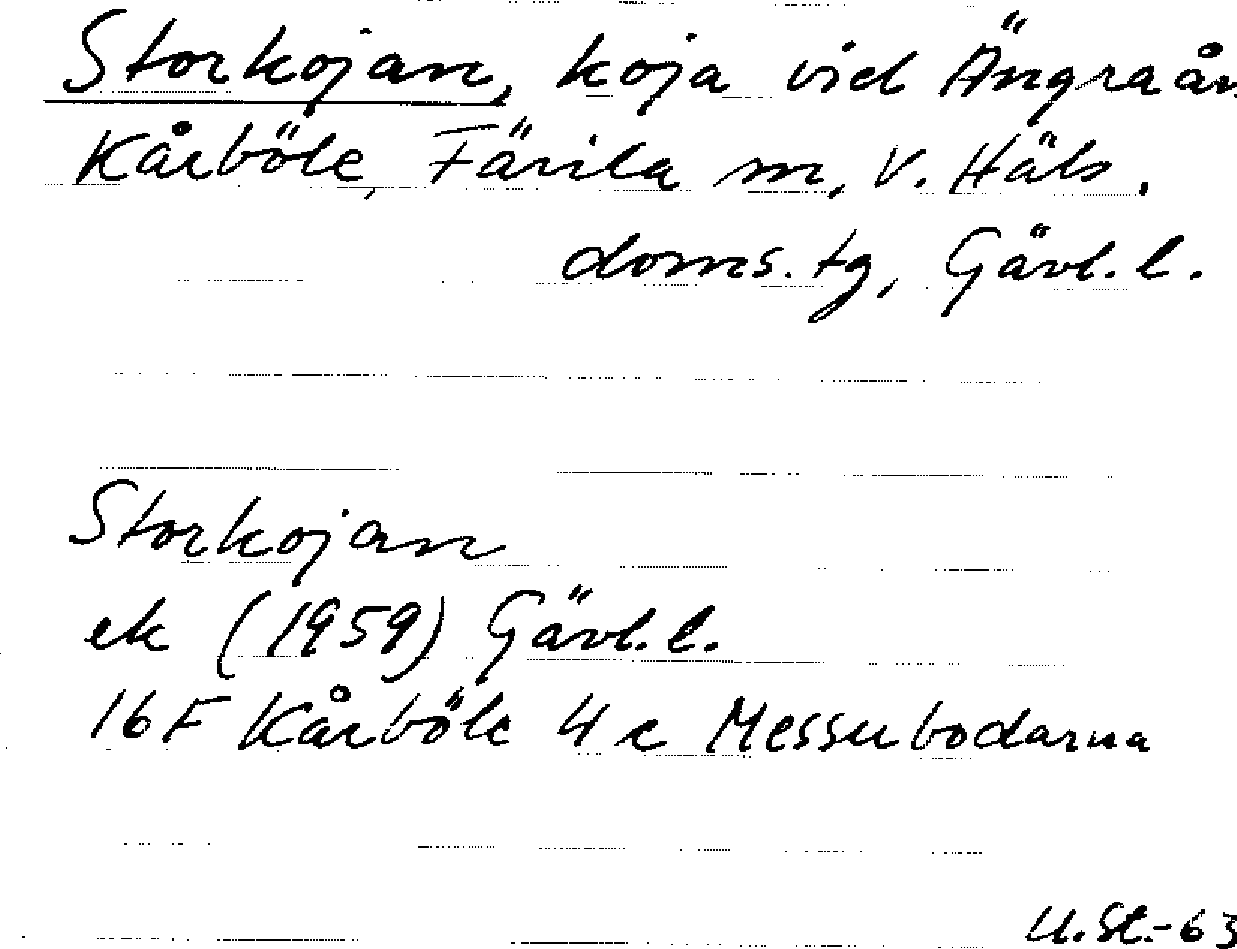 Storkojan, koja vid Ängraån
Kårböle, Färila sn, V. Häls.
doms. tg, Gävl. l.
Storkojan
ek (1959) Gävl. l.
16 F Kårböle 4 c Messubodarna
U. St.-63